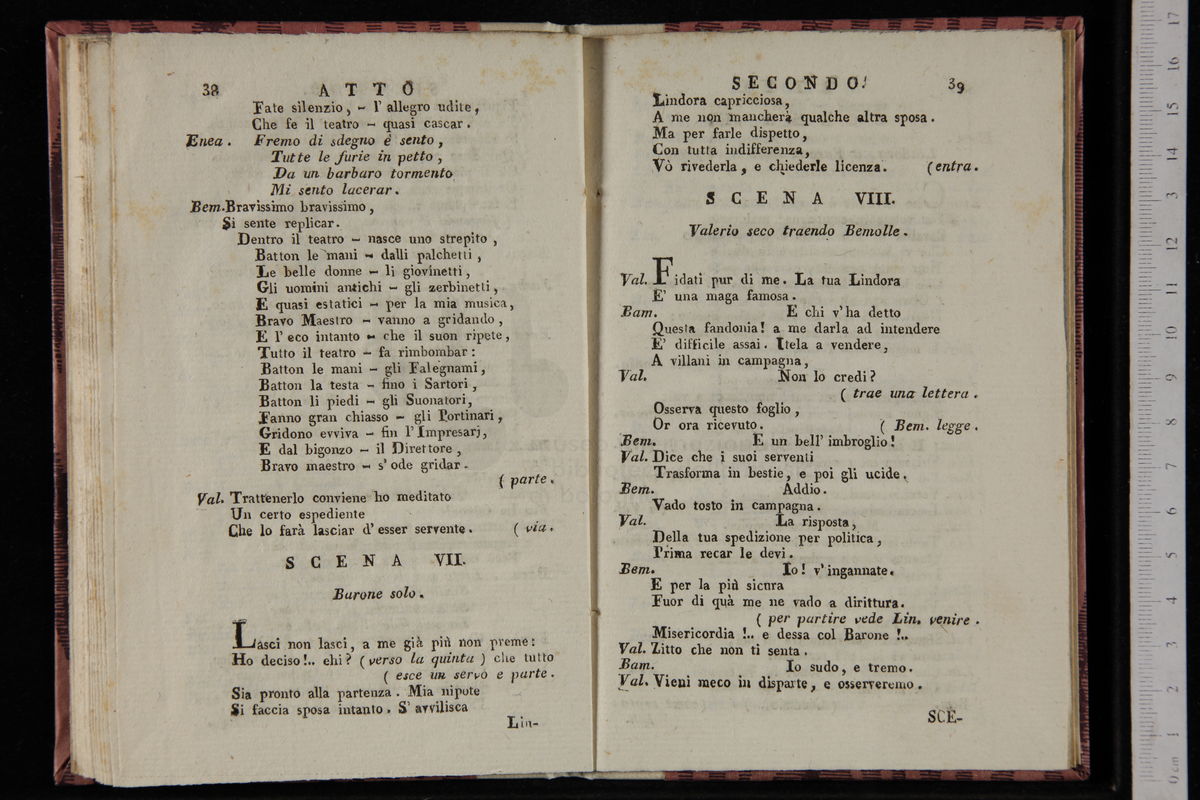 38 ATTO
Fate silenzio, - l' allegro udite,
Che fe il teatro - quasi cascar.
Enea. Fremo di sdegno è sento,
Tutte le furie in petto,
Da un barbaro tormento
Mi sento lacerar.
Bem. Bravissimo bravissimo,
Si sente replicar.
Dentro il teatro - nasce uno strepito,
Batton le mani - dalli palchetti,
Le belle donne - li giovinetti,
Gli uomini antichi - gli zerbinetti,
E quasi estatici - per la mia musica,
Bravo Maestro - vanno a gridando,
E l' eco intanto - che il suon ripete,
Tutto il teatro - fa rimbombar:
Batton le mani - gli Falegnami,
Batton la testa - fino i Sartori,
Batton li piedi - gli Suonatori,
Fanno gran chiasso - gli Portinari,
Gridono evviva - fin l' Impresarj,
E dal bigonzo - il Direttore,
Bravo maestro - s' ode gridar.
( parte.
Val. Trattenerlo conviene ho meditato
Un certo espediente
Che lo farà lasciar d' esser servente. ( via.
SCENA VII.
Barone solo.
Lasci non lasci, a me già più non preme:
Ho deciso!.. ehi? ( verso la quinta ) che tutto
( esce un servo e parte.
Sia pronto alla partenza. Mia nipote
Si faccia sposa intanto. S' avvilisca
Lin-
SECONDO. 39
Lindora capricciosa,
A me non mancherà qualche altra sposa.
Ma per farle dispetto,
Con tutta indifferenza,
Vò rivederla, e chiederle licenza. (entra.
SCENA VIII.
Valerio seco traendo Bemolle.
Val. Fidati pur di me. La tua Lindora
E' una maga famosa.
Bam. E chi v' ha detto
Questa fandonia! a me darla ad intendere
E' difficile assai. Itela a vendere,
A villani in campagna,
Val. Non lo credi?
( trae una lettera.
Osserva questo foglio,
Or ora ricevuto. ( Bem. legge.
Bem. E un bell' imbroglio!
Val. Dice che i suoi serventi
Trasforma in bestie, e poi gli ucide.
Bem. Addio.
Vado tosto in campagna.
Val. La risposta,
Della tua spedizione per politica,
Prima recar le devi.
Bem. Io! v' ingannate.
E per la più sicura
Fuor di quà me ne vado a dirittura.
( per partire vede Lin. venire.
Misericordia!.. e dessa col Barone!..
Val. Zitto che non ti senta.
Bam. Io sudo, e tremo.
Val. Vieni meco in disparte, e osserveremo.
SCE-
0 cm 1 2 3 4 5 6 7 8 9 10 11 12 13 14 15 16 17